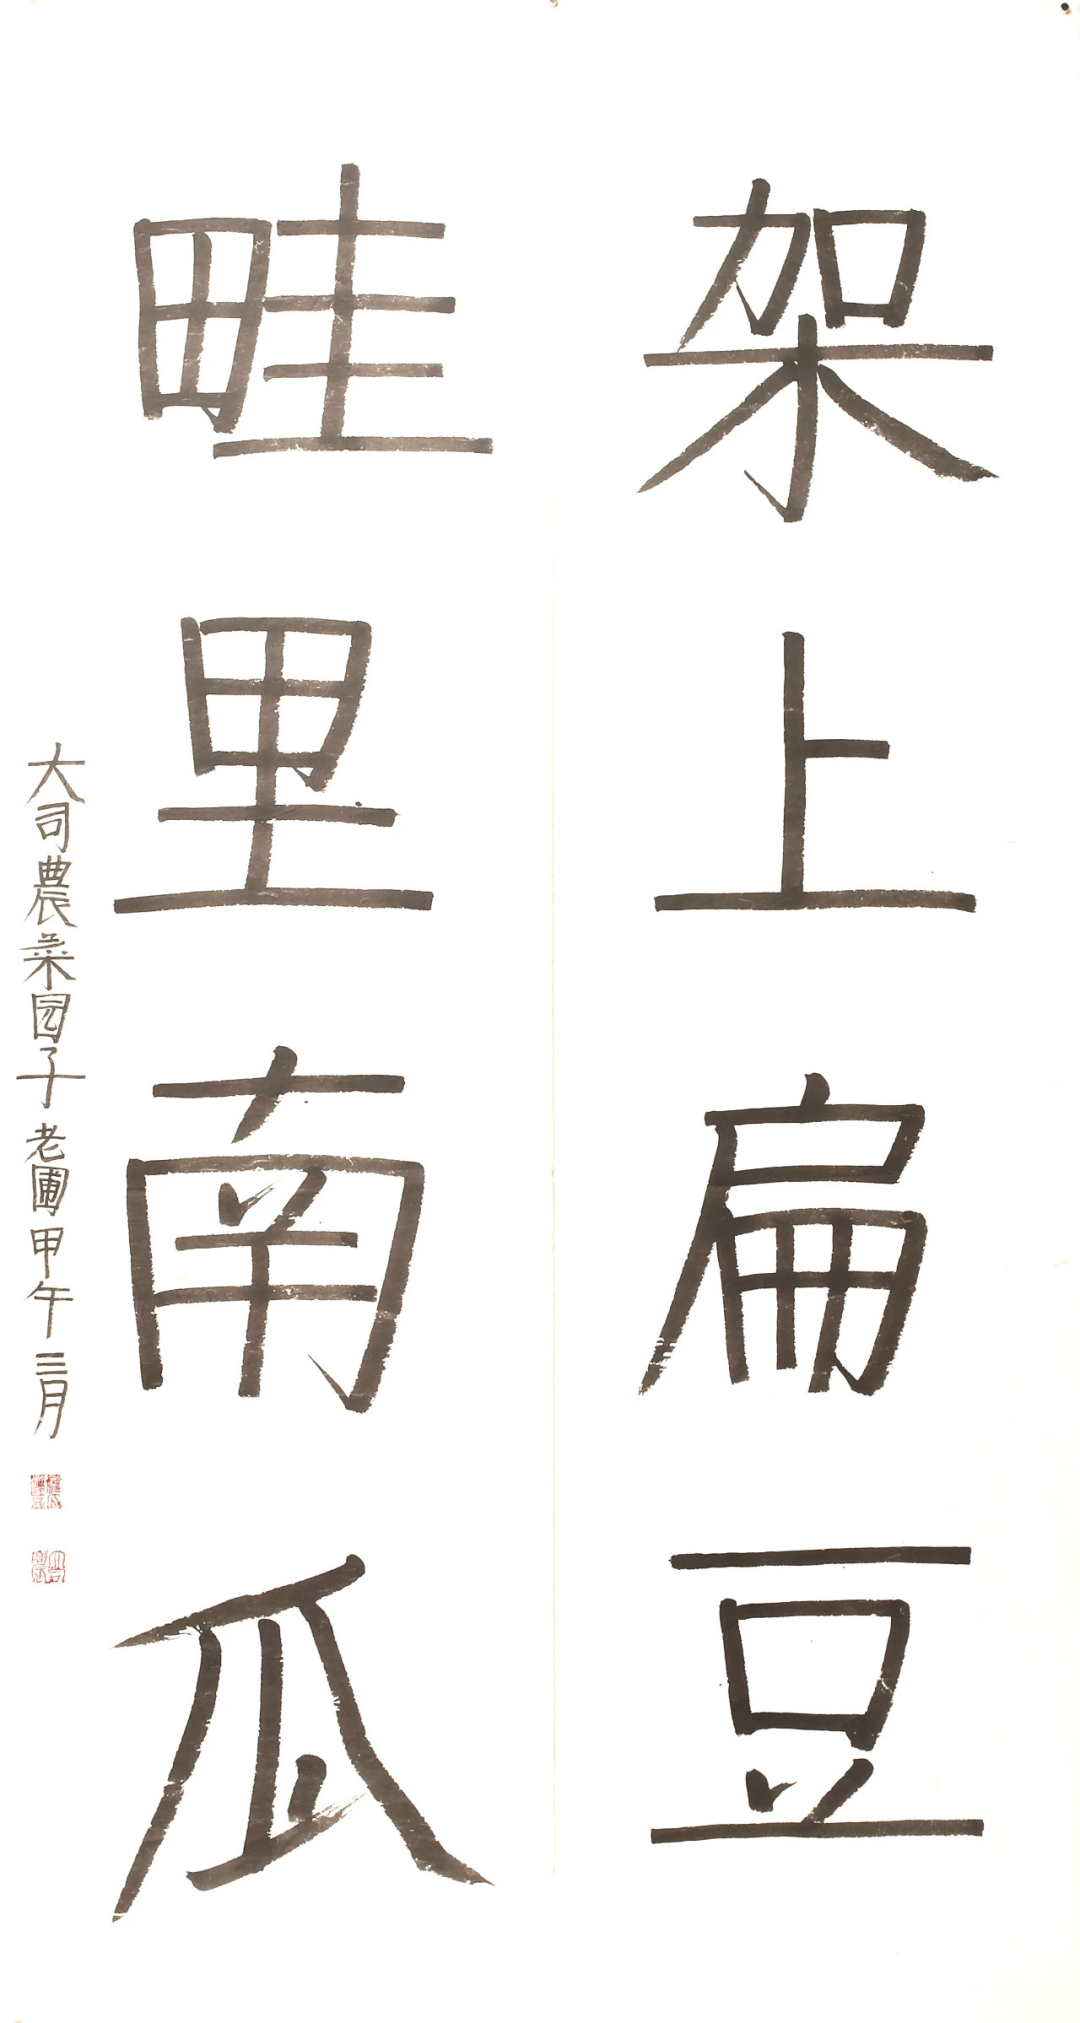 架上扁豆
畦里南瓜
大司農菜园子老圃甲午三月